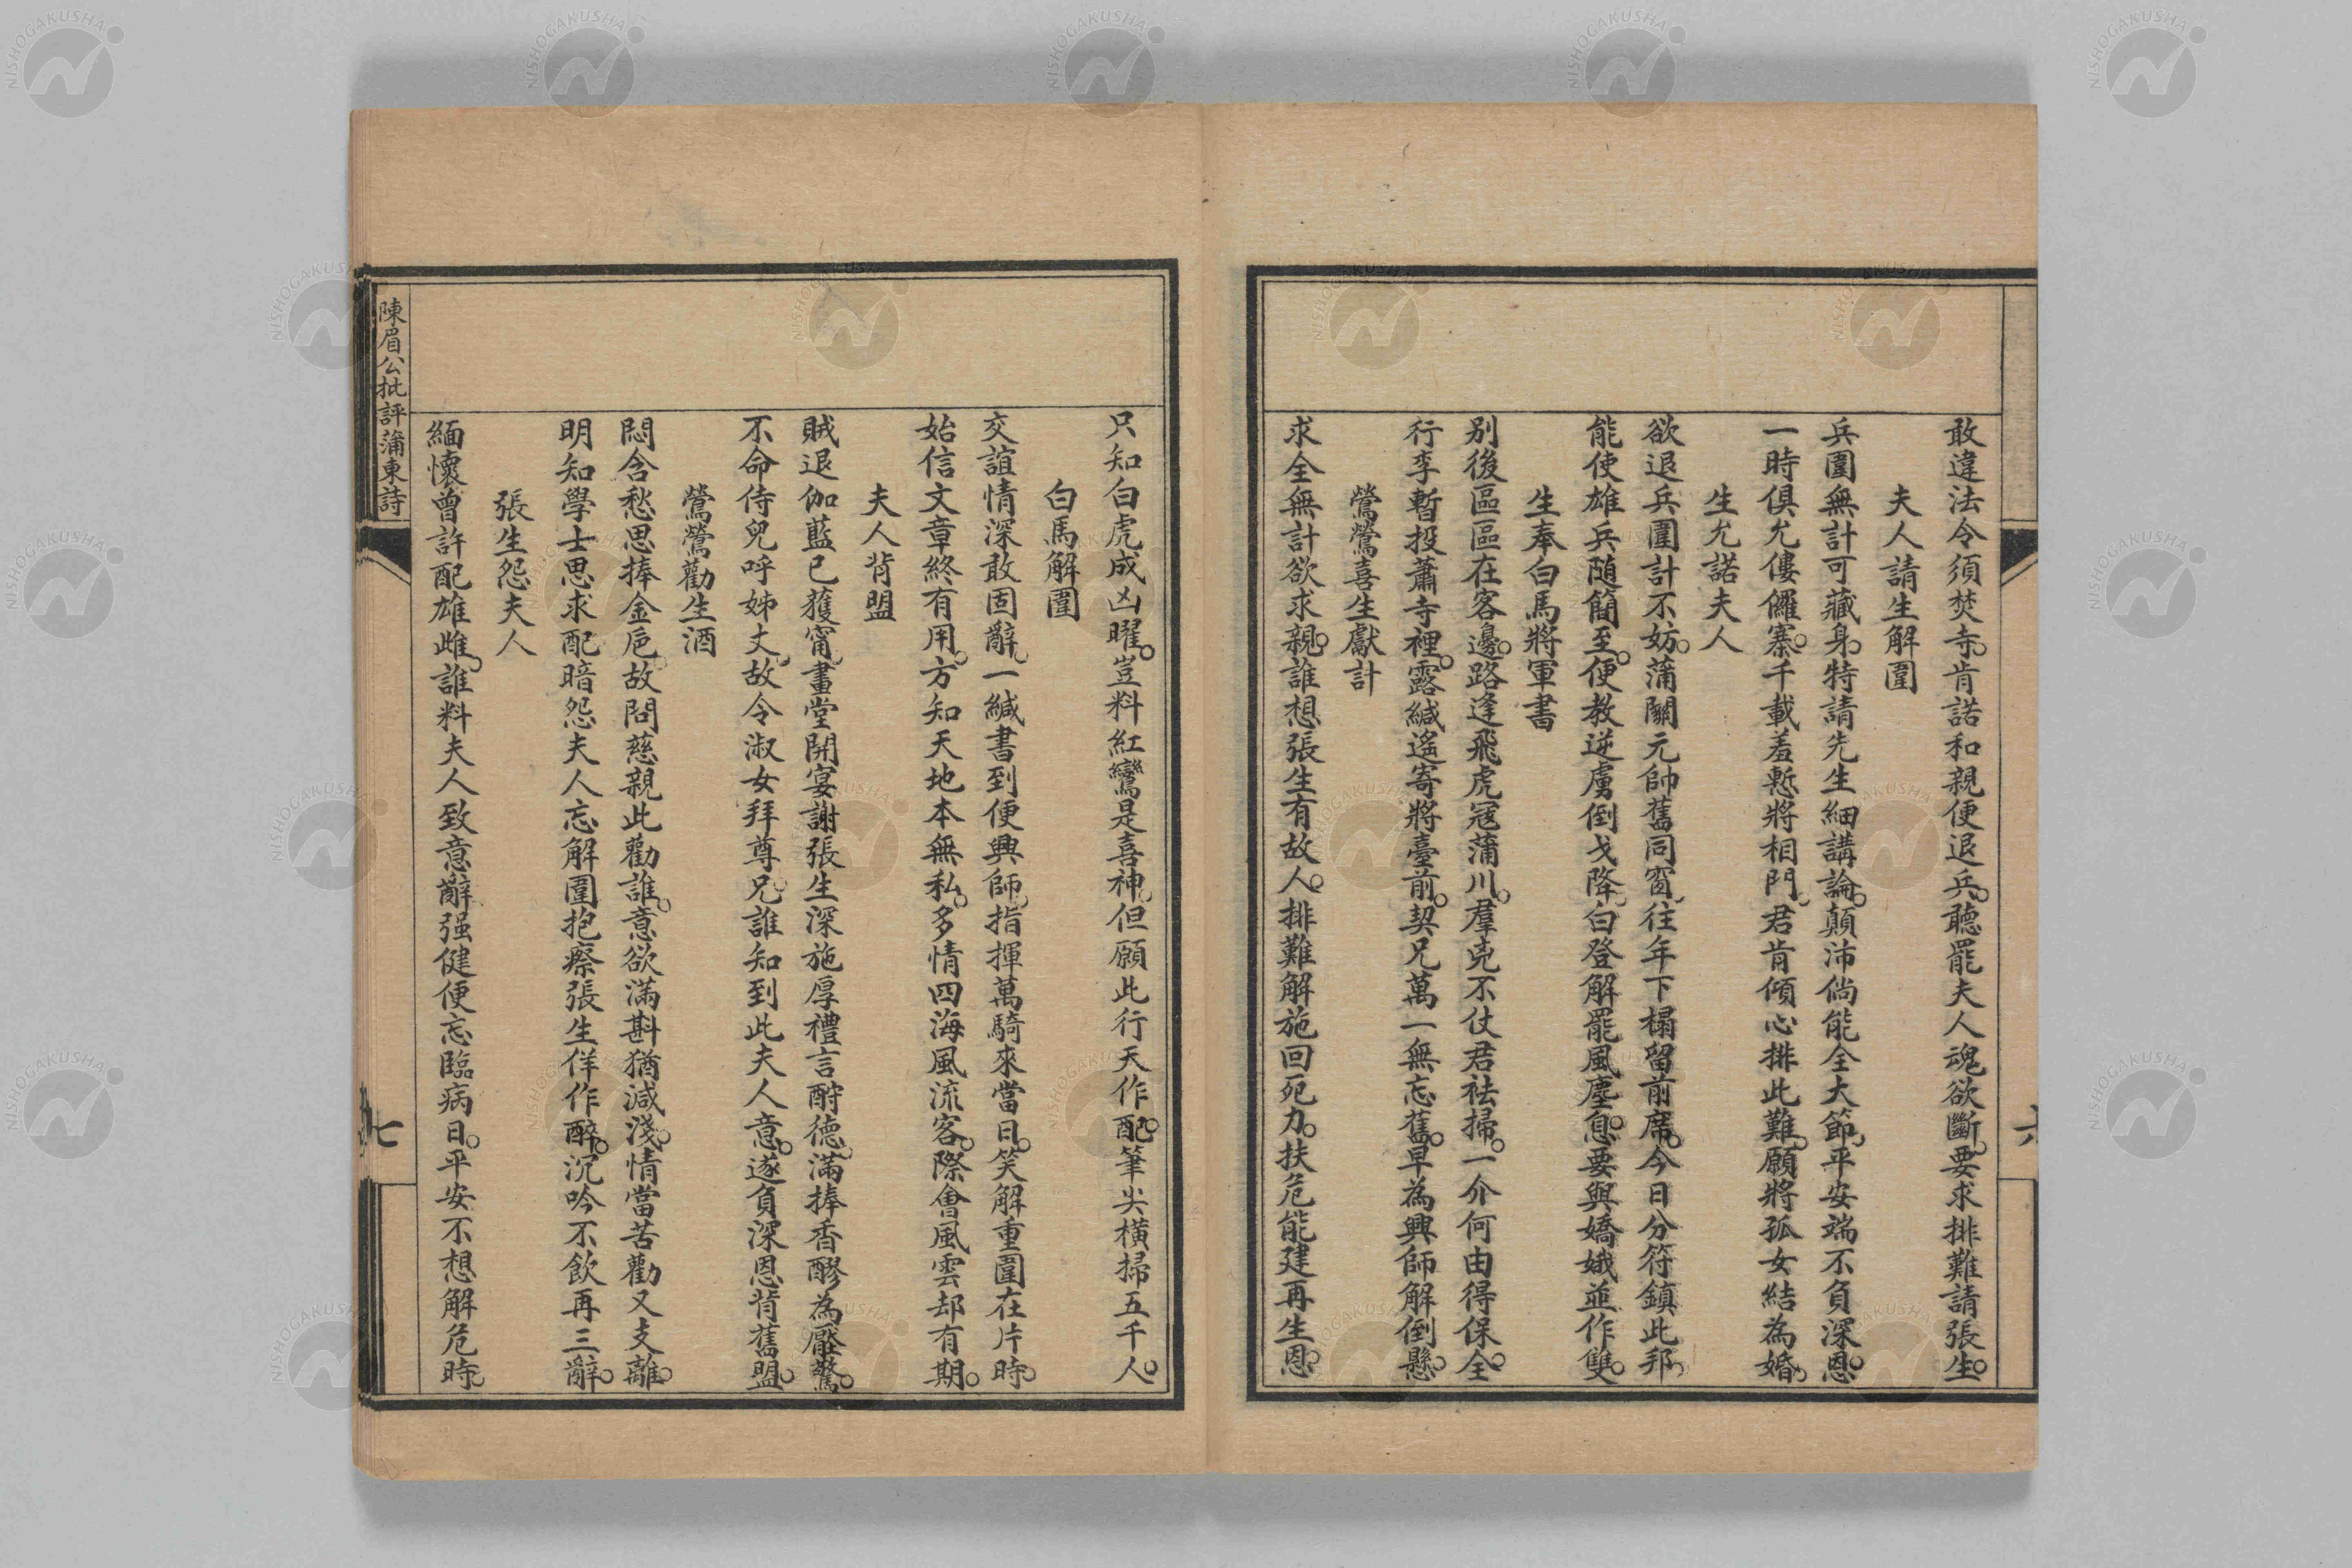 敢違法令須焚寺肯諾和親便退兵聽罷夫人魂欲斷要求排難請張生
夫人請生解圍
兵圍無計可藏身特請先生細講論顛沛倘能全大節平安端不負深恩
一時俱允僂儸寨千載羞慙將相門君肯傾心排此難願將孤女結為婚
生允諾夫人
欲退兵圍計不妨蒲關元帥舊同窗往年下榻留前席今日分符鎮此邦
能使雄兵隨簡至便教逆虜倒戈降白登解罷風塵息要與嬌娥並作雙
生奉白馬將軍書
別後區區在客邊路逢飛虎寇蒲川羣兇不仗君祛掃一介何由得保全
行李暫投蕭寺裡露緘遙寄將臺前契兄萬一無忘舊早為興師解倒懸
鶯鶯喜生獻計
求全無計欲求親誰想張生有故人排難解施回死力扶危能建再生恩
六
只知白虎成凶曜豈料紅鸞是喜神但願此行天作配筆尖橫掃五千人
白馬解圍
交誼情深敢固辭一緘書到便興師指揮萬騎來當日笑解重圍在片時
始信文章終有用方知天地本無私多情四海風流客際會風雲却有期
夫人背盟
賊退伽藍已獲甯畫堂開宴謝張生深施厚禮言酧德滿捧香醪為壓驚
不命侍兒呼姊丈故令淑女拜尊兄誰知到此夫人意遂負深恩背舊盟
鶯鶯勸生酒
悶含愁思捧金巵故問慈親此勸誰意欲滿斟猶減淺情當苦勸又支離
明知學士思求配暗怨夫人忘解圍抱瘵張生佯作醉沉吟不飲再三辭
張生怨夫人
緬懷曾許配雄雌誰料夫人致意辭强健便忘臨病日平安不想解危時
陳眉公批評蒲東詩
七
NISHOGAKUSHA